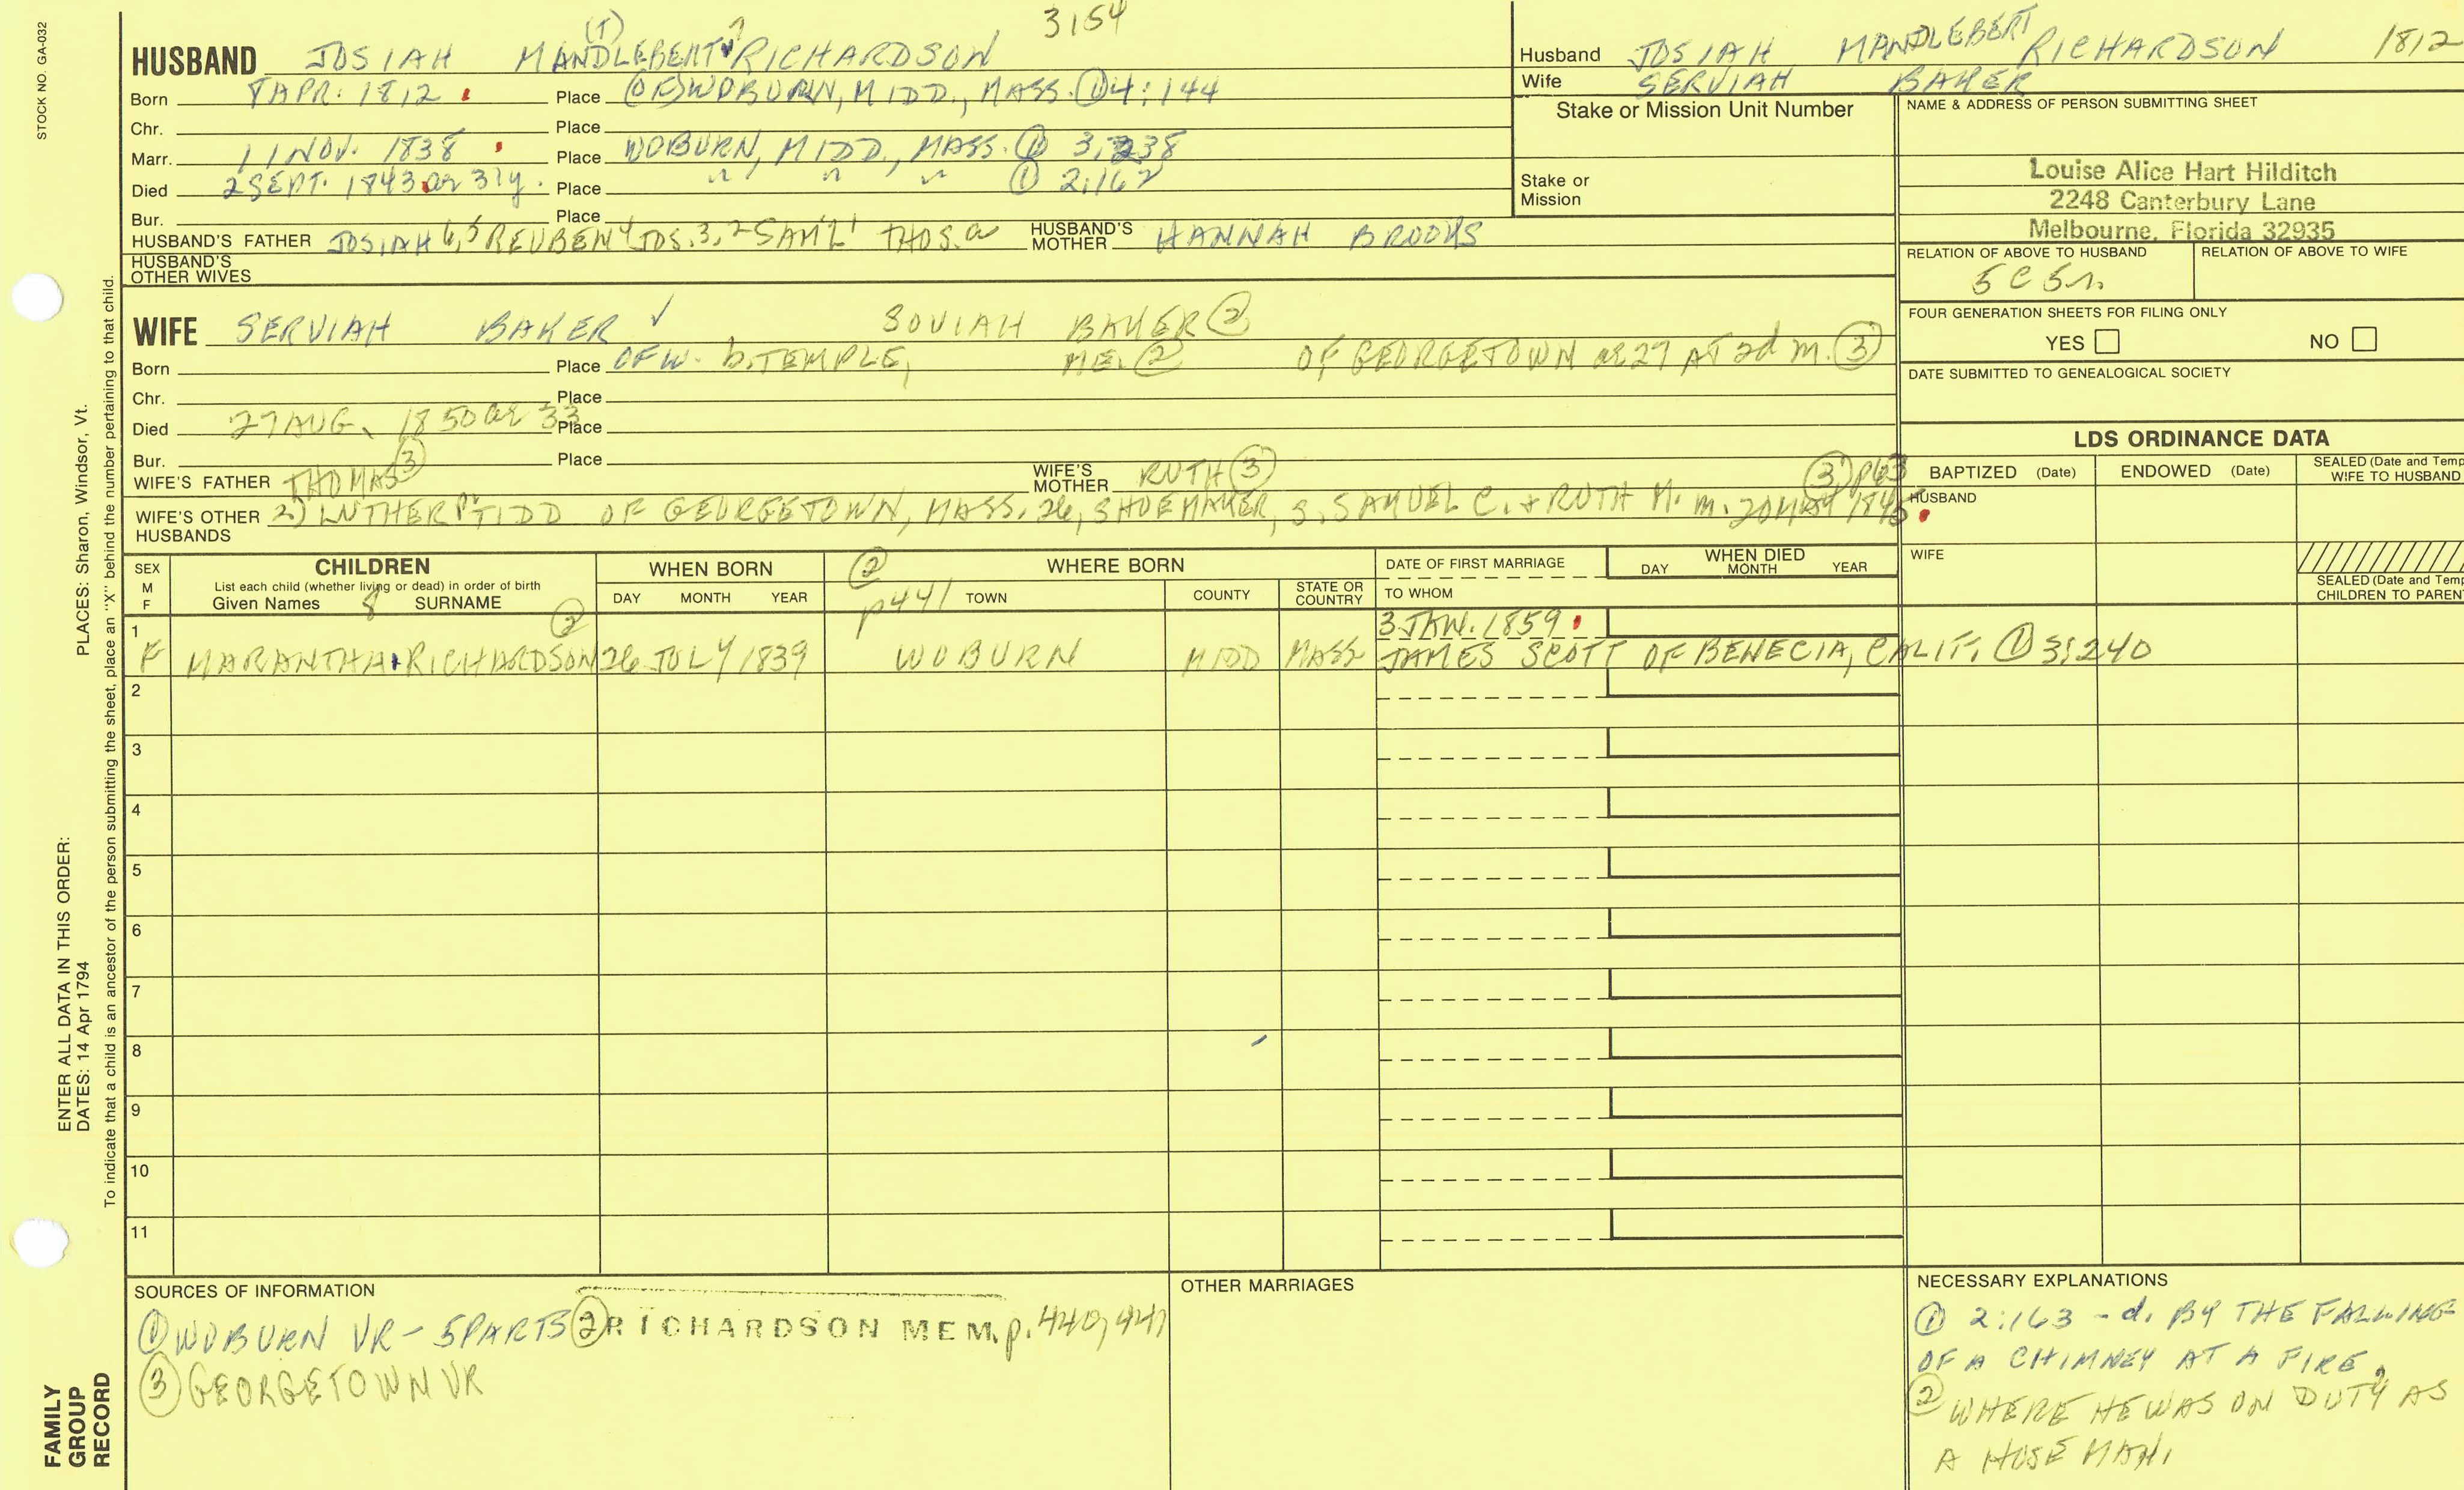 3154
HUSBAND JOSIAH MANDLEBERT RICHARDSON
(T) ?
Born 8 APR. 1812 Place (OF) WOBURN, MIDD., MASS. ① 4:144
Chr. Place
Marr. 11 NOV. 1838 Place WOBURN, MIDD., MASS. ① 3:238
Died 2 SEPT. 1843 ae 31y. Place " " " ① 2:162
Bur. Place
HUSBAND'S FATHER JOSIAH 6,5 REUBEN 4 JOS. 3,2 SAM'L 1 THOS. a HUSBAND'S MOTHER HANNAH BROOKS
HUSBAND'S OTHER WIVES
WIFE SERVIAH BAKER ✓ SOVIAH BAKER ②
Born Place OF W. b. TEMPLE, ME. ② OF GEORGETOWN ae 27 AT 2d m. ③
Chr. Place
Died 27 AUG. 1850 ae 33 Place
Bur. Place
WIFE'S FATHER THOMAS ③ WIFE'S MOTHER RUTH ③ ③ p63
WIFE'S OTHER HUSBANDS 2) LUTHER P. TIDD OF GEORGETOWN, MASS. 26, SHOEMAKER, S. SAMUEL C. + RUTH M. m. 20 MAY 1845
Husband JOSIAH MANDLEBERT RICHARDSON 1812
Wife SERVIAH BAKER
Stake or Mission Unit Number
Stake or Mission
NAME & ADDRESS OF PERSON SUBMITTING SHEET
Louise Alice Hart Hilditch
2248 Canterbury Lane
Melbourne, Florida 32935
RELATION OF ABOVE TO HUSBAND RELATION OF ABOVE TO WIFE
5C5r.
FOUR GENERATION SHEETS FOR FILING ONLY
YES NO
DATE SUBMITTED TO GENEALOGICAL SOCIETY
LDS ORDINANCE DATA
BAPTIZED (Date) ENDOWED (Date) SEALED (Date and Temp
WIFE TO HUSBAND
HUSBAND
WIFE
SEALED (Date and Temp
CHILDREN TO PAREN
SEX M F
CHILDREN
List each child (whether living or dead) in order of birth
Given Names 8 SURNAME
WHEN BORN
DAY MONTH YEAR
② p441
WHERE BORN
TOWN COUNTY STATE OR COUNTRY
DATE OF FIRST MARRIAGE
TO WHOM
WHEN DIED
DAY MONTH YEAR
1 ② 3 JAN. 1859
F MARANTHA RICHARDSON 26 JULY 1839 WOBURN MIDD MASS JAMES SCOTT OF BENECIA, CALIF. ① 3:240
2
3
4
5
6
7
8
9
10
11
SOURCES OF INFORMATION
① WOBURN VR - 5 PARTS ② RICHARDSON MEM. p. 440, 441
③ GEORGETOWN VR
OTHER MARRIAGES
NECESSARY EXPLANATIONS
① 2:163 - d. BY THE FALLING
OF A CHIMNEY AT A FIRE,
② WHERE HE WAS ON DUTY AS
A HOSE MAN.
STOCK NO. GA-032
ENTER ALL DATA IN THIS ORDER:
DATES: 14 Apr 1794 PLACES: Sharon, Windsor, Vt.
To indicate that a child is an ancestor of the person submitting the sheet, place an "X" behind the number pertaining to that child.
FAMILY
GROUP
RECORD